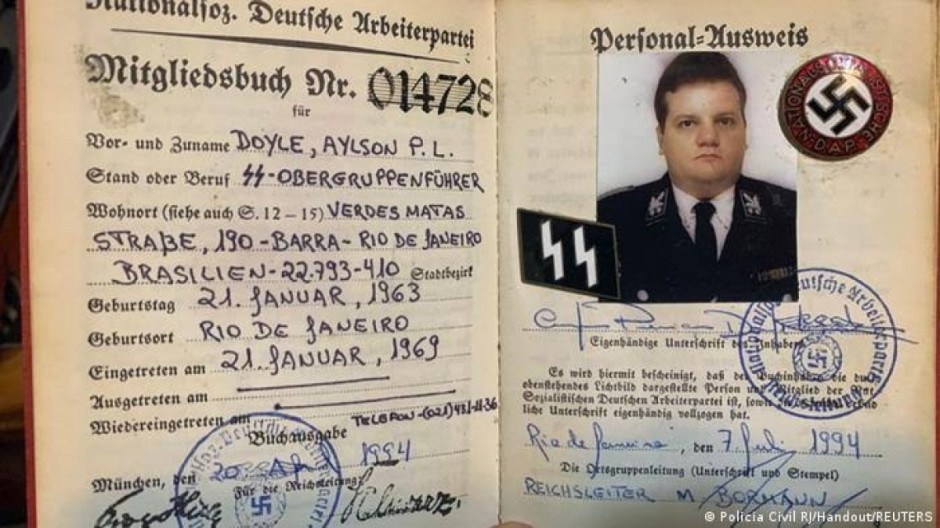 Nationalsoz. Deutsche Arbeiterpartei
Mitgliedsbuch Nr. 014728
für
Vor- und Zuname DOYLE, AYLSON P. L.
Stand oder Beruf SS-OBERGRUPPENFÜHRER
Wohnort (siehe auch S. 12 – 15) VERDES MATAS
STRAßE, 190 - BARRA - RIO DE JANEIRO
BRASILIEN - 22.793-410 Stadtbezirk
Geburtstag 21. JANUAR, 1963
Geburtsort RIO DE JANEIRO
Eingetreten am 21. JANUAR, 1969
Ausgetreten am
Wiedereingetreten am TELEFON-(021)
Buchausgabe
München, den 20 1994
Für die Reichsleitung
Personal-Ausweis
NATIONALSOZIALISTISCHE D.A.P.
SS
Eigenhändige Unterschrift des Inhabers
Es wird hiermit bescheinigt, daß der Buchinhaber die durch
obenstehendes Lichtbild dargestellte Person und Mitglied der Nat.
Sozialistischen Deutschen Arbeiterpartei ist, sowie
liche Unterschrift eigenhändig vollzogen hat.
Rio de Janeiro, den 7. Juli 1994
Die Ortsgruppenleitung (Unterschrift und Stempel)
REICHSLEITER M. BORMANN
Nationalsoz. Deutsche Arbeiterpartei
© Policia Civil RJ/Handout/REUTERS